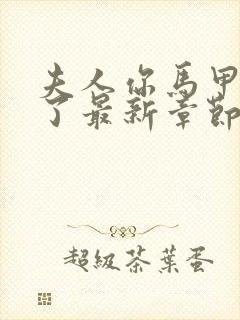 夫人你馬甲
了最新章節
超級茶葉蛋